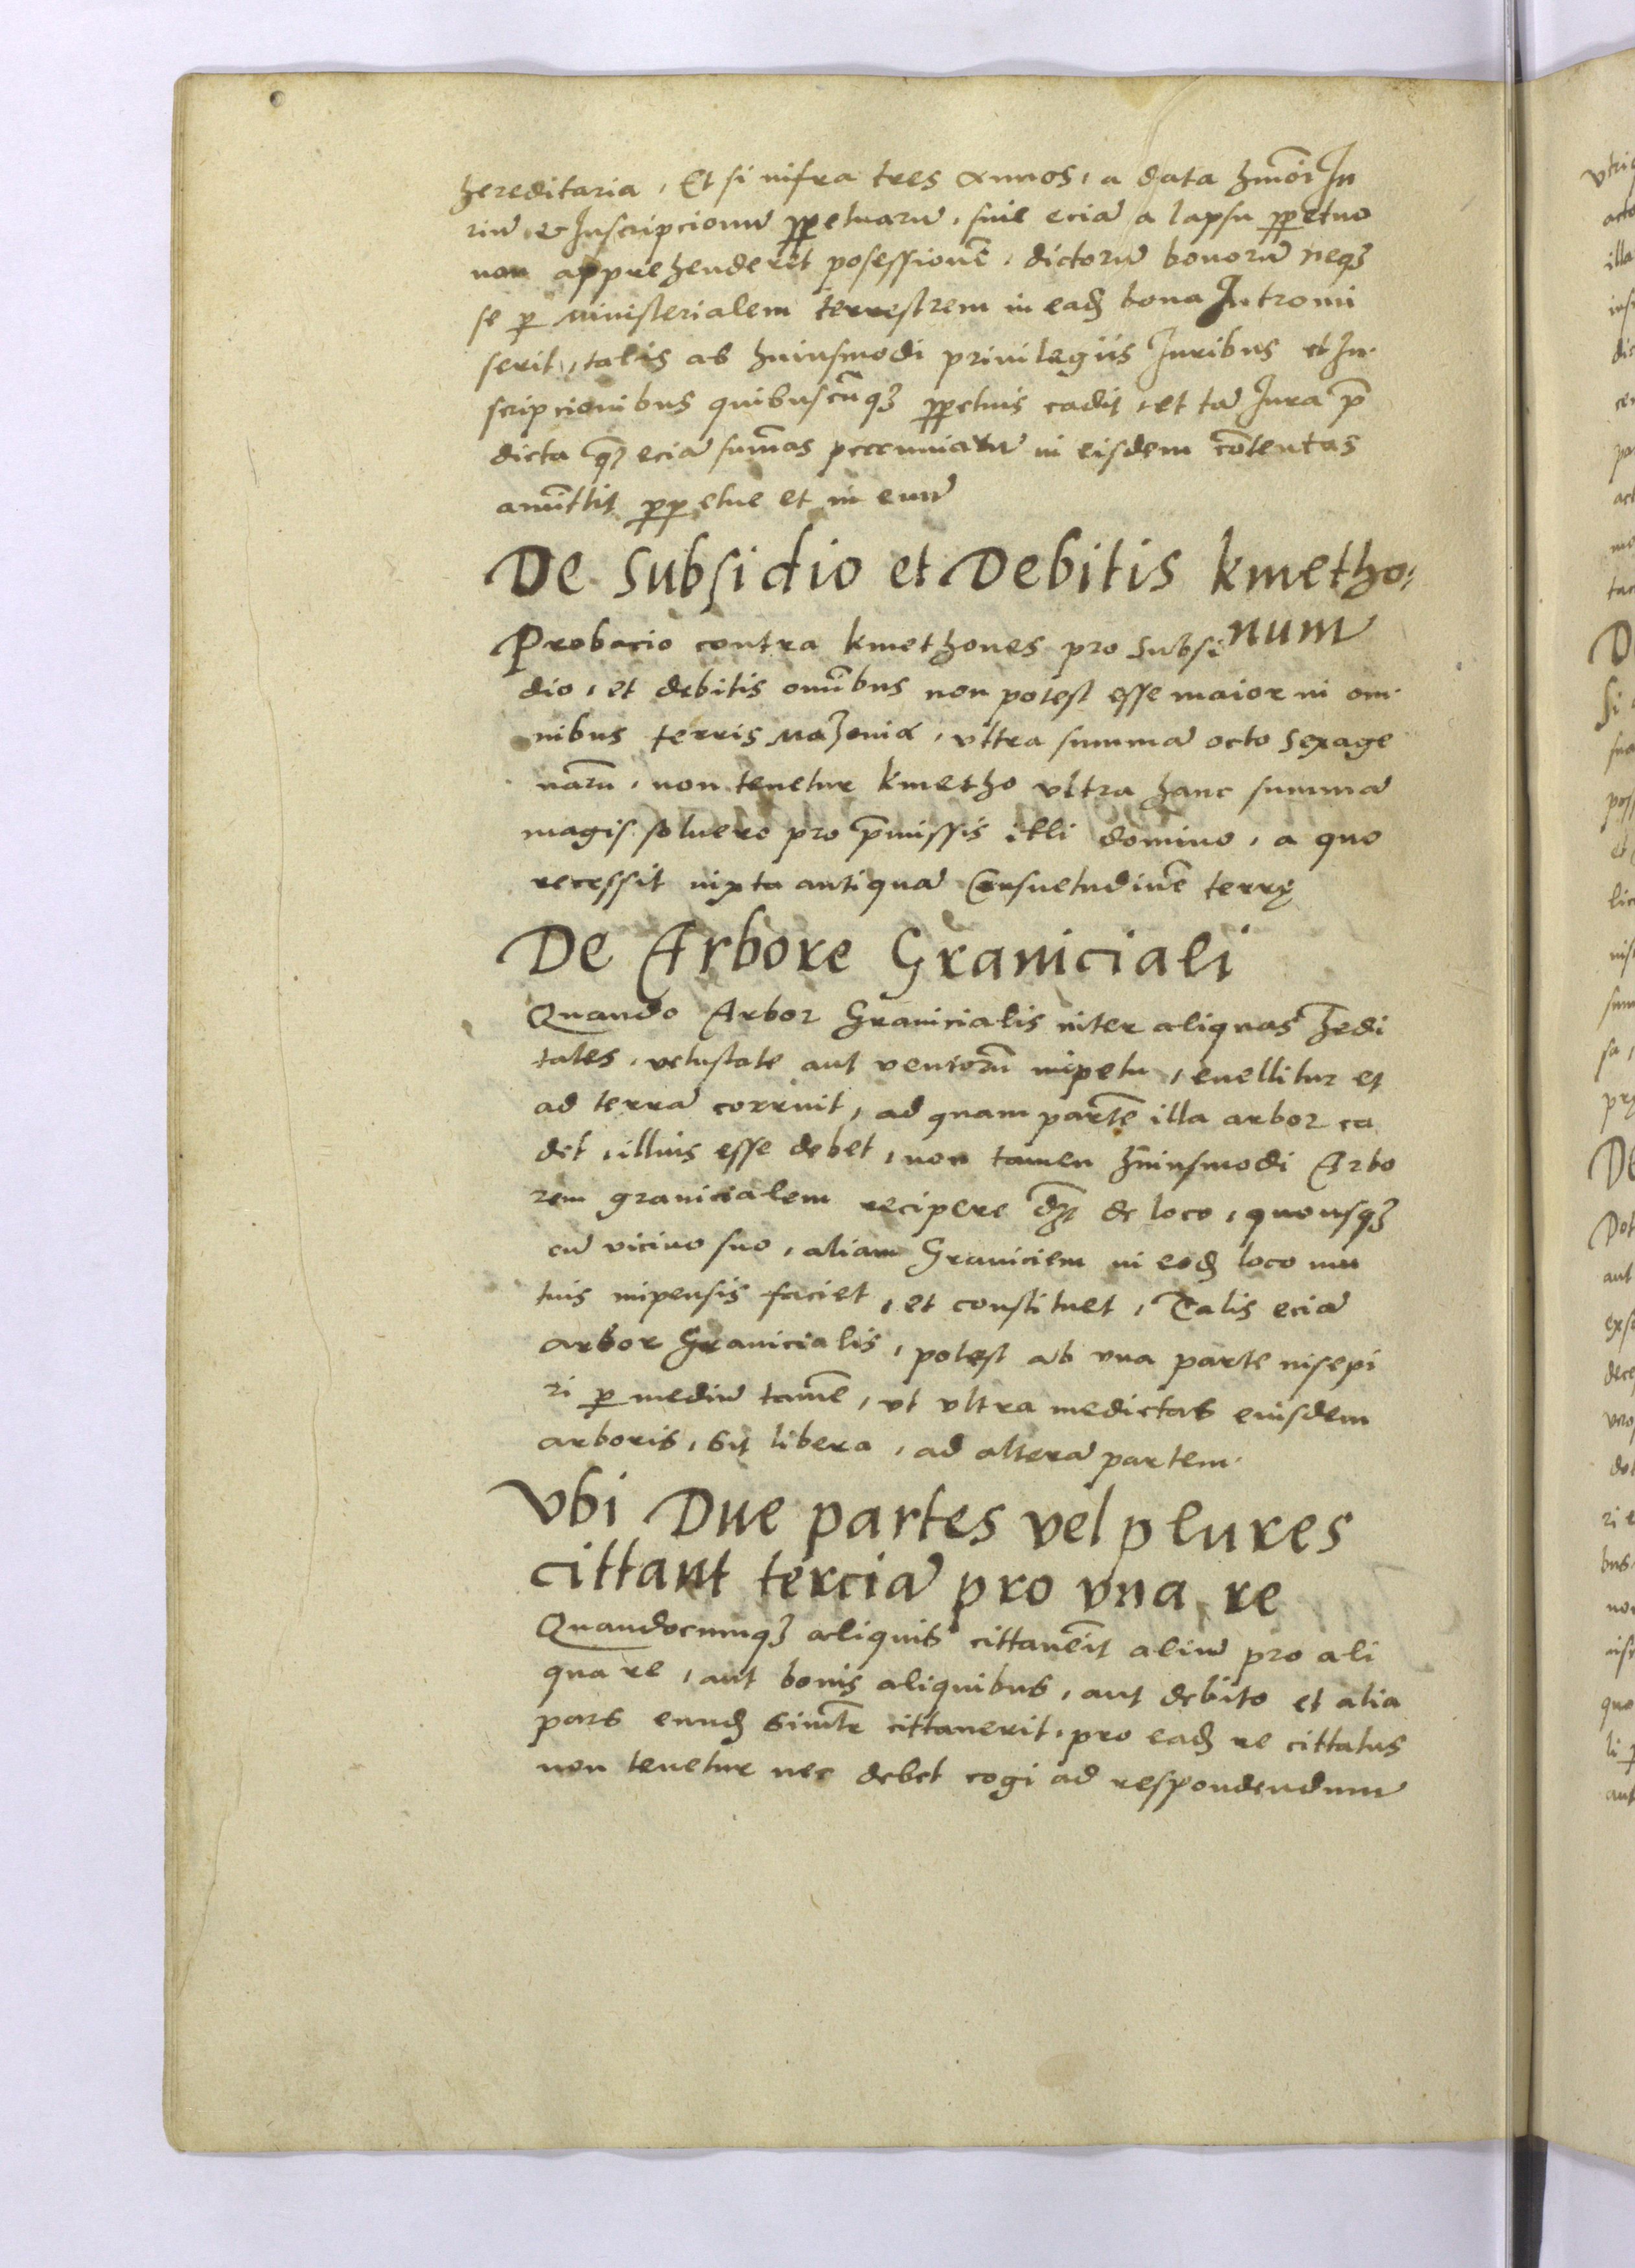 hereditaria, Et si infra tres annos, a data hmōi Ju
riū et Inscripcionū ꝑpetuarū, siue eciā a lapsu ꝑpetuo
non apprehenderet posessionē, dictorū bonorū neqꝫ
se ꝑ ministerialem terrestrem in eadꝫ bona Intromi
serit, talis ab huiusmodi priuilegiis Juribus et In-
scripcionibus quibuscūqꝫ ꝑpetuis cadit, et tā Jura p̄
dicta qꝫ eciā sum̄as peccuniarū in eisdem cōtentas
amīttit ꝑpetue et in euū
De Subsidio et Debitis kmetho:
num
Probacio contra kmethones pro subsi
dio, et debitis om̄ibus non potest esse maior in om-
nibus terris Mazouiæ, vltra summā octo sexage
narū, non tenetur kmetho vltra hanc summā
magis soluere pro p̄missis illi domino, a quo
recessit iuxta antiquā Consuetudinē terrę
De Arbore Graniciali
Quando Arbor Granicialis inter aliquas h̄edi
tates, vetustate aut ventorū impetu, euellitur et
ad terrā corruit, ad quam partē illa arbor ca
det, illius esse debet, non tamen huiusmodi Arbo
rem granicialem recipere dꝫ de loco, quousqꝫ
cū vicino suo, aliam Graniciem in eodꝫ loco mu
tuis impensis faciet, et constituet, Talis eciā
arbor Granicialis, potest ab vna parte insepi
ri ꝑ mediū tamē, vt vltra medietas eiusdem
arboris, sit libera, ad alterā partem.
Vbi Due partes vel plures
cittant terciā pro vna re
Quandocumqꝫ aliquis cittauēit aliū pro ali
qua re, aut bonis aliquibus, aut debito et alia
pars eundꝫ simłr cittauerit, pro eadꝫ re cittatus
non tenetur nec debet cogi ad respondendum